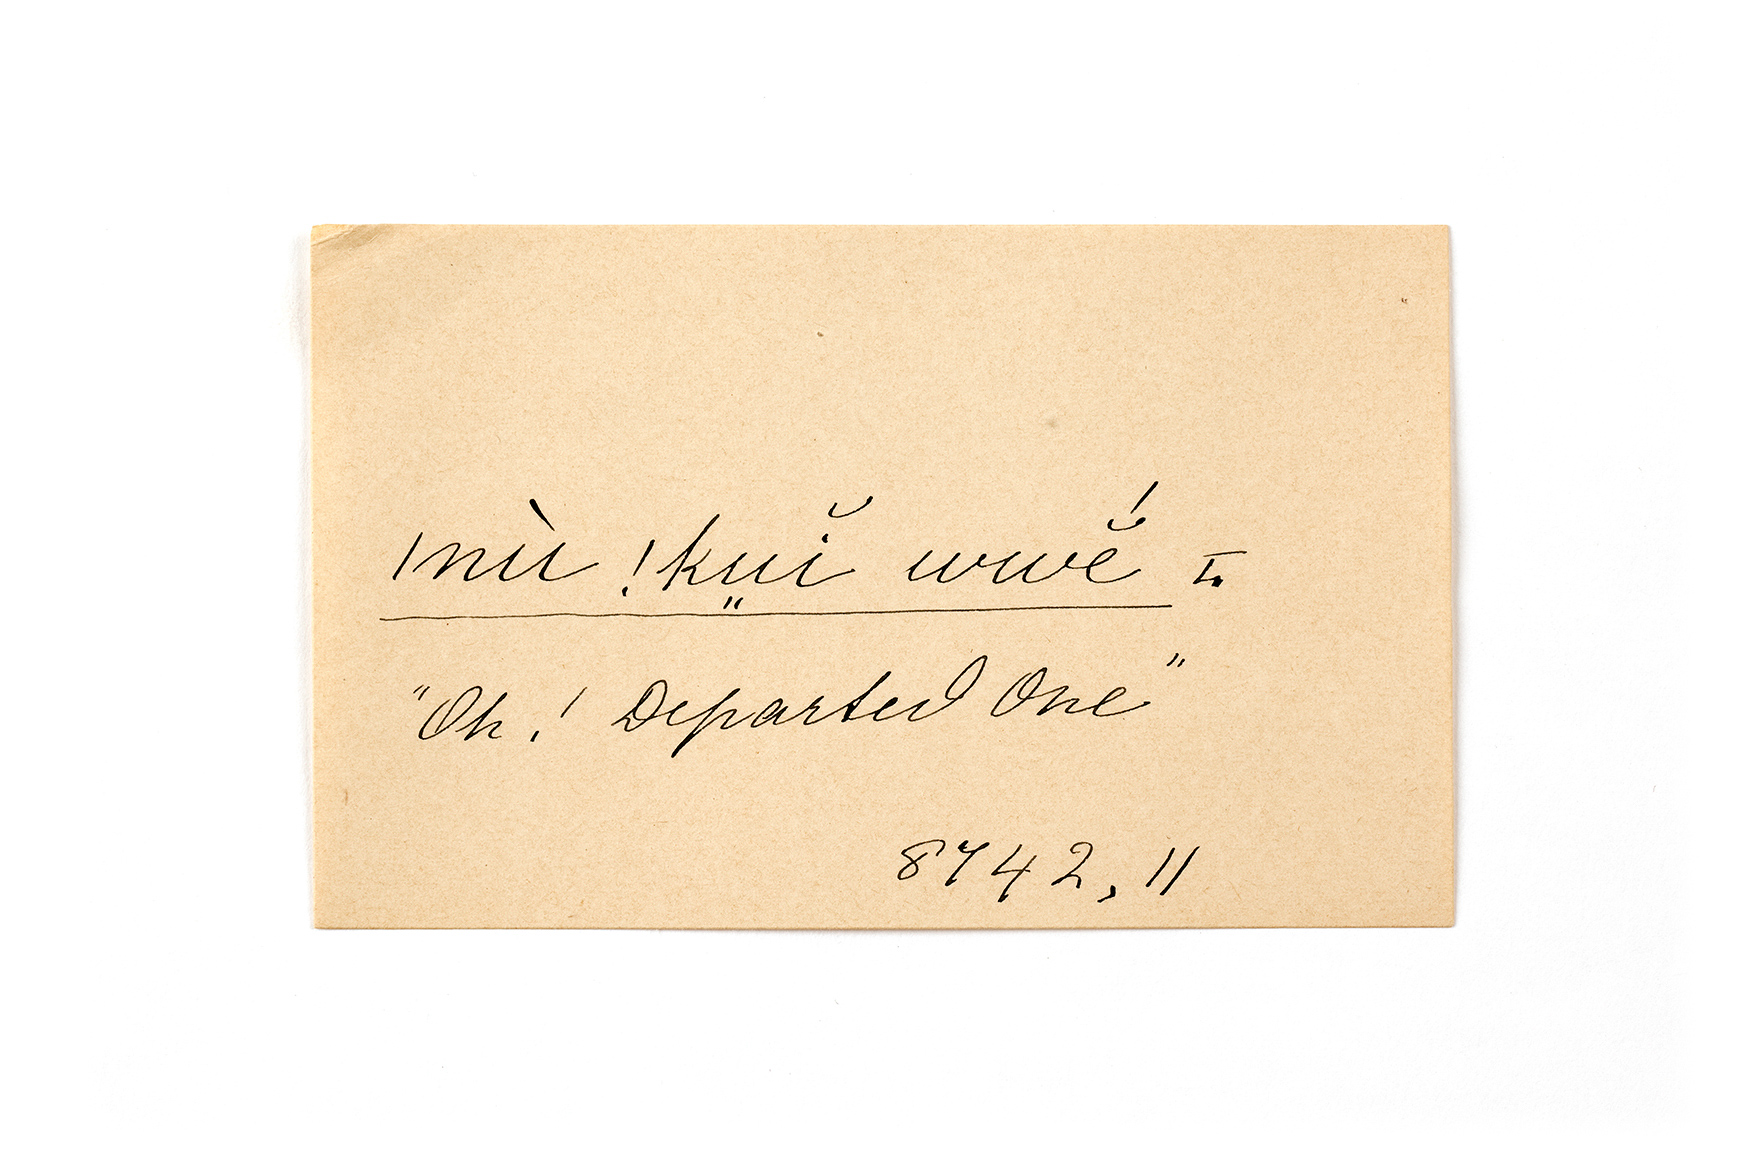 /nù !kṳĭ wwĕ́ I.
"Oh! Departed One"
8742, 11